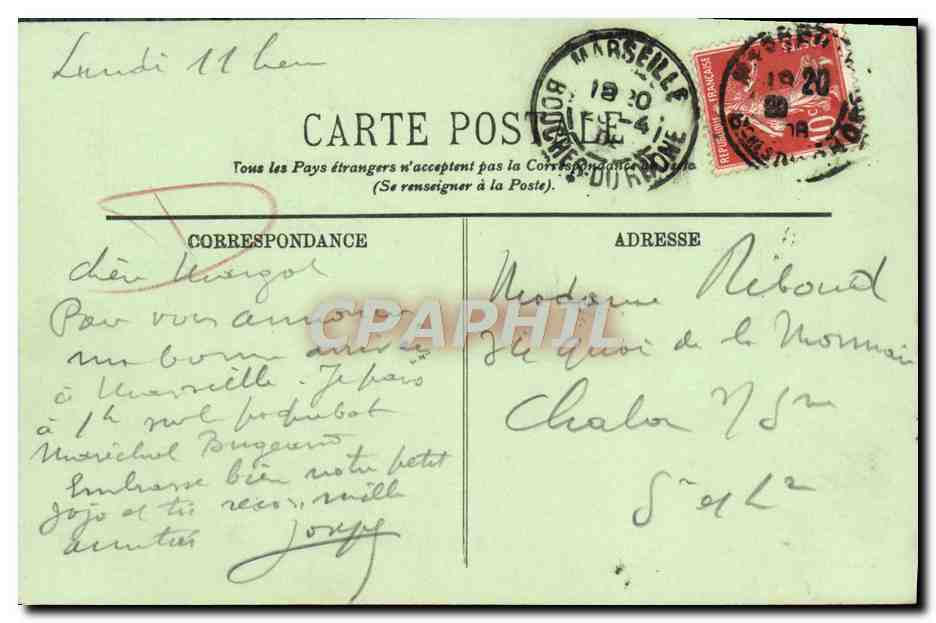 Lundi 11 heu
CARTE POSTALE
Tous les Pays étrangers n'acceptent pas la Correspondance
(Se renseigner à la Poste).
MARSEILLE
18 20
BOUCHES-DU-RHONE
REPUBLIQUE FRANÇAISE
10c
CORRESPONDANCE
chère Margot
Pour vous annoncer
ma bonne arrivée
à Marseille. Je pars
à 1h sur paquebot
Maréchal Bugeaud
Embrasse bien notre petit
Jojo et toi reçois mille
amitiés Joseph
ADRESSE
Madame Riboud
quai de la
Chalon s/ Sne
S et L
CPAPHIL